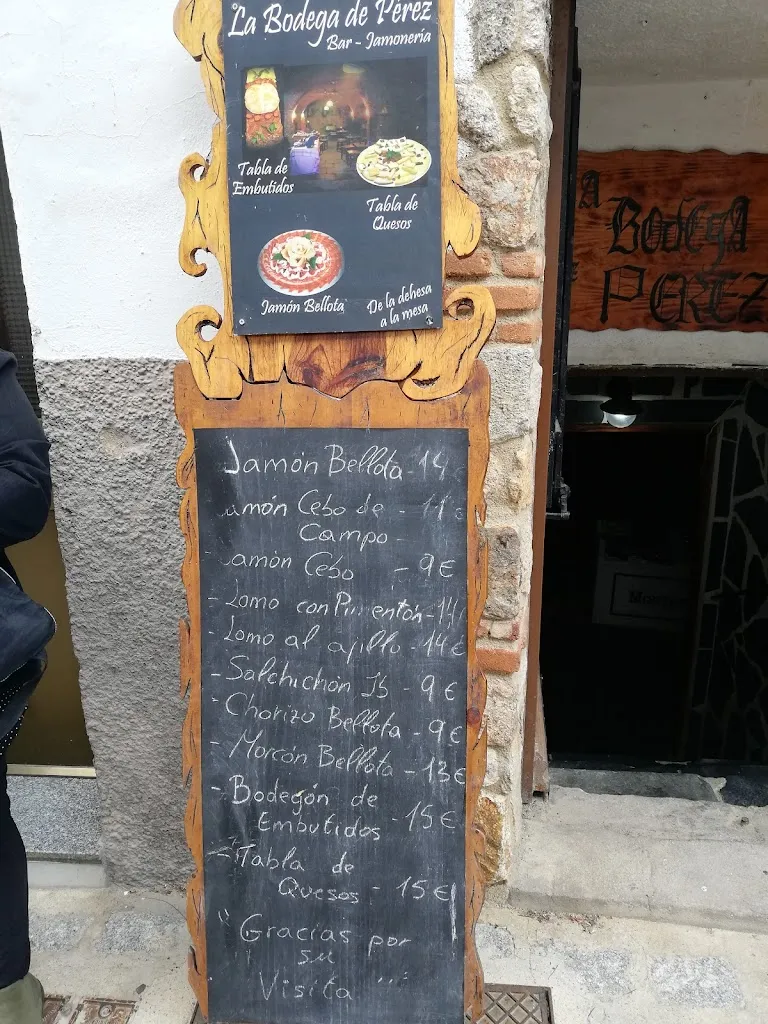 La Bodega de Pérez
Bar - Jamonería
Tabla de
Embutidos
Tabla de
Quesos
Jamón Bellota
De la dehesa
a la mesa
LA
BODEGA
DE
PEREZ
Jamón Bellota - 14 €
Jamón Cebo de - 11 €
Campo -
- Jamón Cebo - 9 €
- Lomo con Pimentón - 14
- Lomo al ajillo - 14 €
- Salchichón IB - 9 €
- Chorizo Bellota - 9 €
- Morcón Bellota - 13 €
- Bodegón de
Embutidos - 15 €
- Tabla de
Quesos - 15 €
" Gracias por
su
Visita "